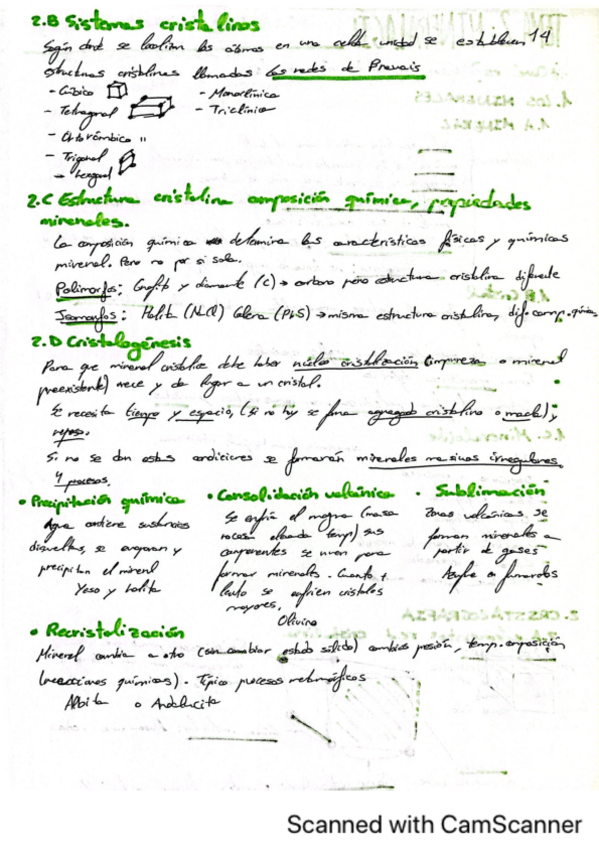 2.B Sistemas cristalinos
Según donde se localizan los átomos en una celda unidad se establecen 14
estructuras cristalinas llamadas las redes de Bravais
- Cúbico - Monoclínico
- Tetragonal - Triclínico
- Ortorómbico "
- Trigonal
- Hexagonal
2.C Estructura cristalina composición química, propiedades
minerales.
La composición química determina las características físicas y químicas
mineral. Pero no por si sola.
Polimorfos: Grafito y diamante (C) → carbono pero estructura cristalina diferente
Isomorfos: Halita (NaCl) Galena (PbS) → misma estructura cristalina, dif. comp. química
2.D Cristalogénesis
Para que mineral cristalice debe haber núcleo cristalización (impureza o mineral
preexistente) nece y da lugar a un cristal.
Se necesita tiempo y espacio, (si no hay se forma agregado cristalino o macla) y
reposo.
Si no se dan estas condiciones se formarán minerales masivos irregulares
4 procesos.
• Precipitación química • Consolidación volcánica • Sublimación
Agua contiene sustancias
disueltas, se evaporan y
precipitan el mineral
Yeso y halita
Se enfría el magma (masa
rocosa elevada temp) sus
componentes se unen para
formar minerales. Cuanto +
lento se enfríen cristales
mayores,
Olivino
Zonas volcánicas se
forman minerales a
partir de gases
Azufre o fumarolas
• Recristalización
Mineral cambia a otro (sin cambiar estado sólido) cambios presión, temp. composición
(reacciones químicas). Típico procesos metamórficos
Albita o Andalucita
Scanned with CamScanner